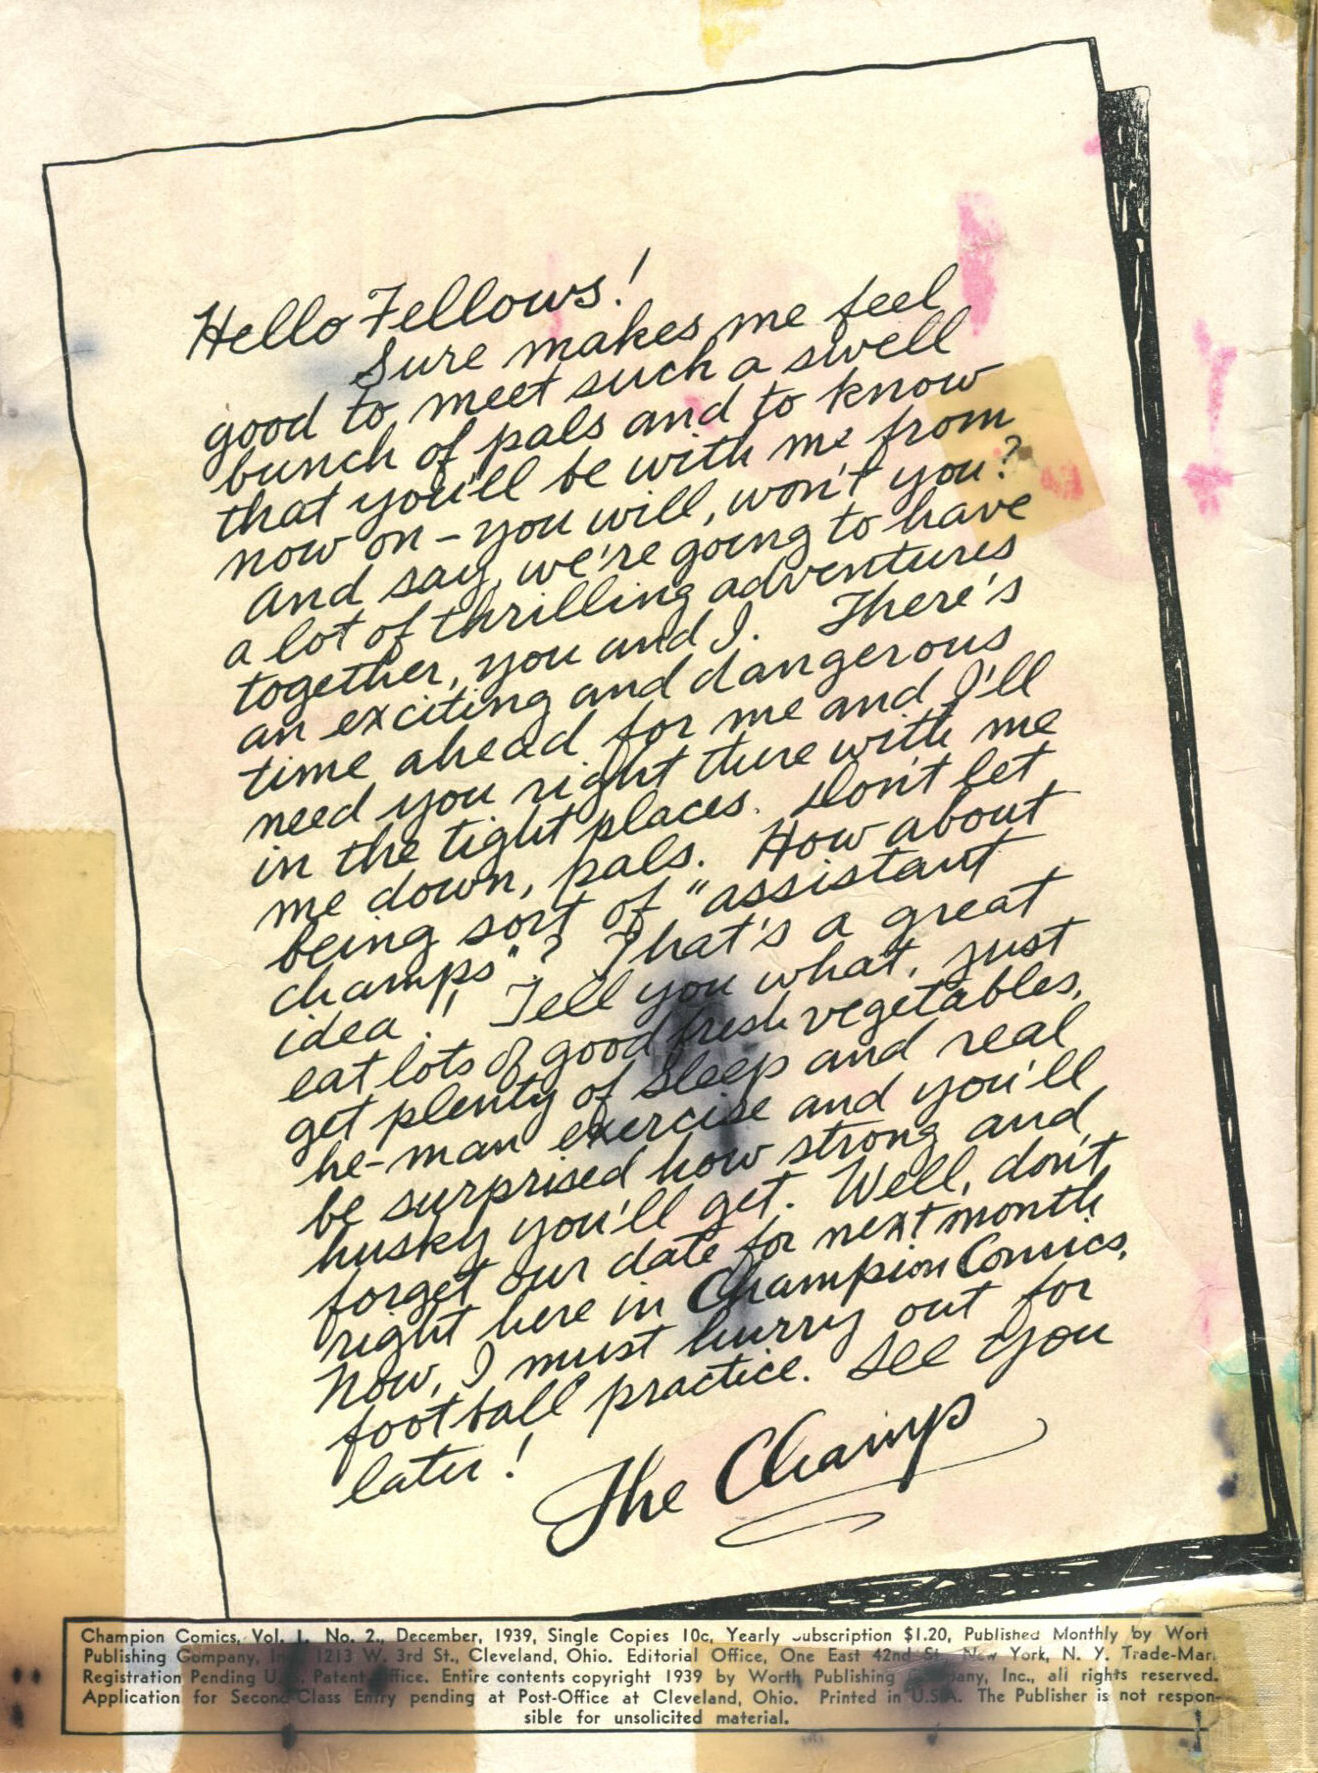 Hello Fellows!
Sure makes me feel
good to meet such a swell
bunch of pals and to know
that you'll be with me from
now on - you will, won't you?
And say, we're going to have
a lot of thrilling adventures
together, you and I. There's
an exciting and dangerous
time ahead for me and I'll
need you right there with me
in the tight places. Don't let
me down, pals. How about
being sort of "assistant
champs"? That's a great
idea!! Tell you what, just
eat lots of good fresh vegetables,
get plenty of sleep and real
he-man exercise and you'll
be surprised how strong and
husky you'll get. Well, don't
forget our date for next month
right here in Champion Comics.
Now, I must hurry out for
football practice. See you
later!
The Champ
Champion Comics, Vol. 1, No. 2., December, 1939, Single Copies 10c, Yearly Subscription $1.20, Published Monthly by Wort
Publishing Company, Inc., 1213 W. 3rd St., Cleveland, Ohio. Editorial Office, One East 42nd St., New York, N. Y. Trade-Mar
Registration Pending U.S. Patent Office. Entire contents copyright 1939 by Worth Publishing Company, Inc., all rights reserved.
Application for Second Class Entry pending at Post-Office at Cleveland, Ohio. Printed in U.S.A. The Publisher is not respon-
sible for unsolicited material.